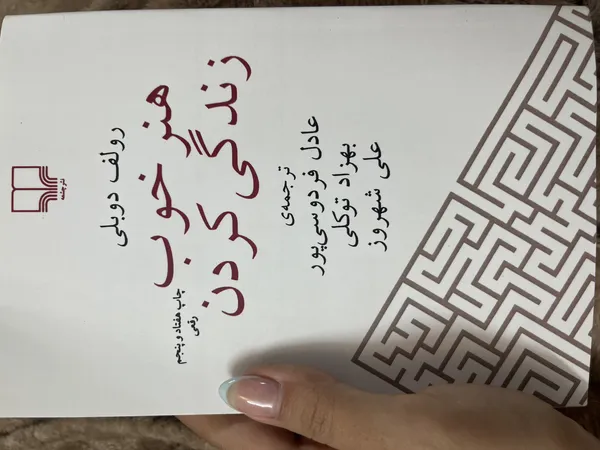 نشرچشمه
رولف دوبلی
هنر خوب
زندگی کردن
چاپ هفتاد و پنجم
رقعی
ترجمه‌ی
عادل فردوسی‌پور
بهزاد توکلی
علی شهروز